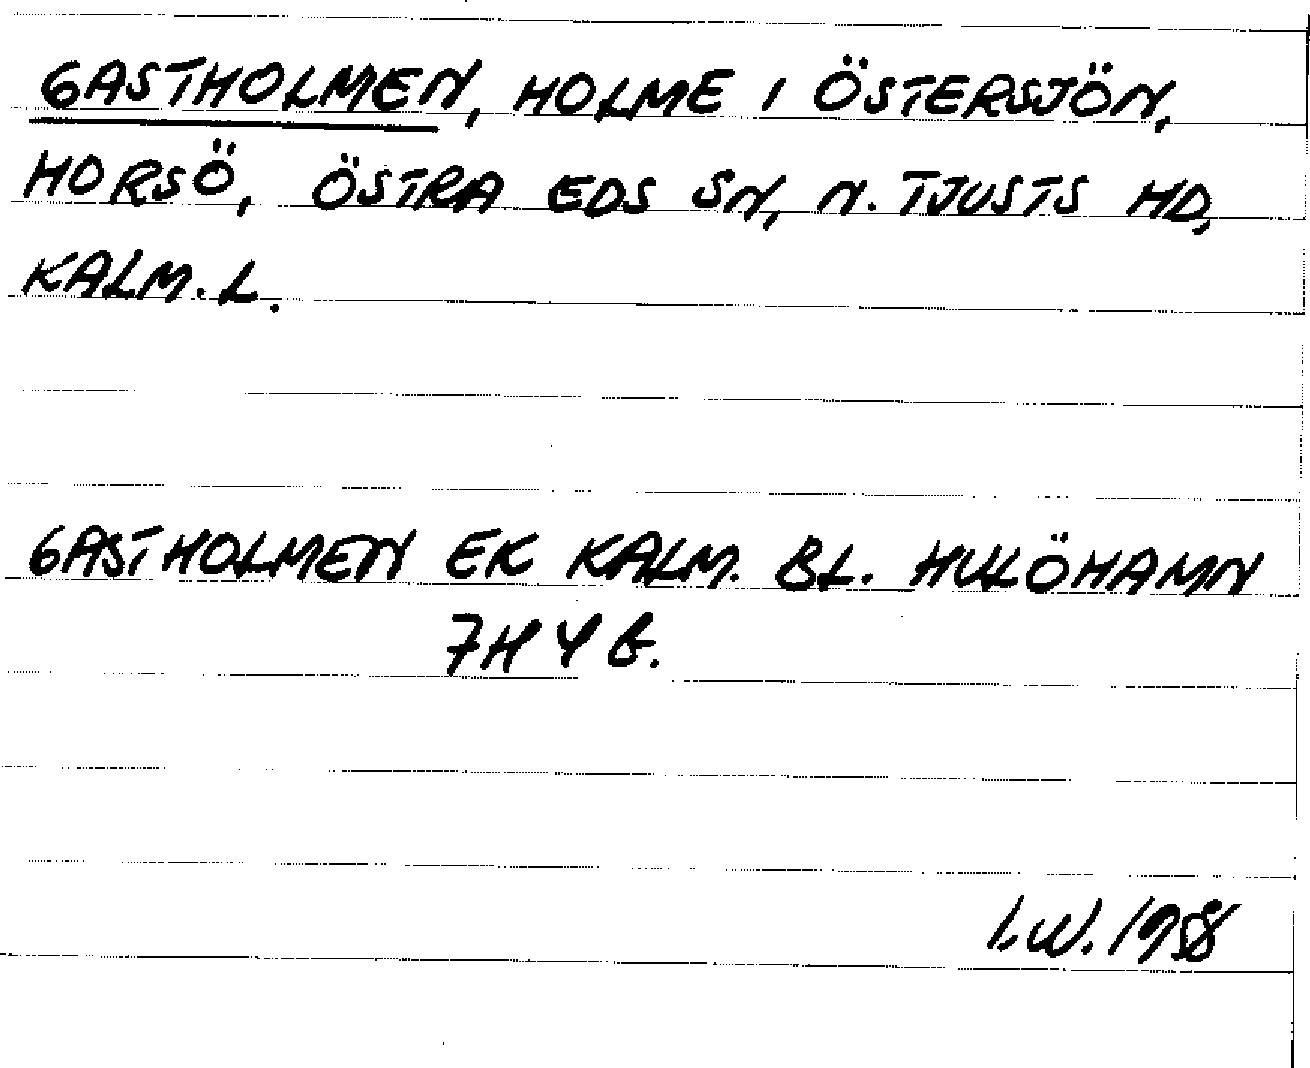 GASTHOLMEN, HOLME I ÖSTERSJÖN,
HORSÖ, ÖSTRA EDS SN, N. TJUSTS HD,
KALM. L.
GASTHOLMEN EK KALM. BL. HULÖHAMN
7H 4 b.
I.W. 1958